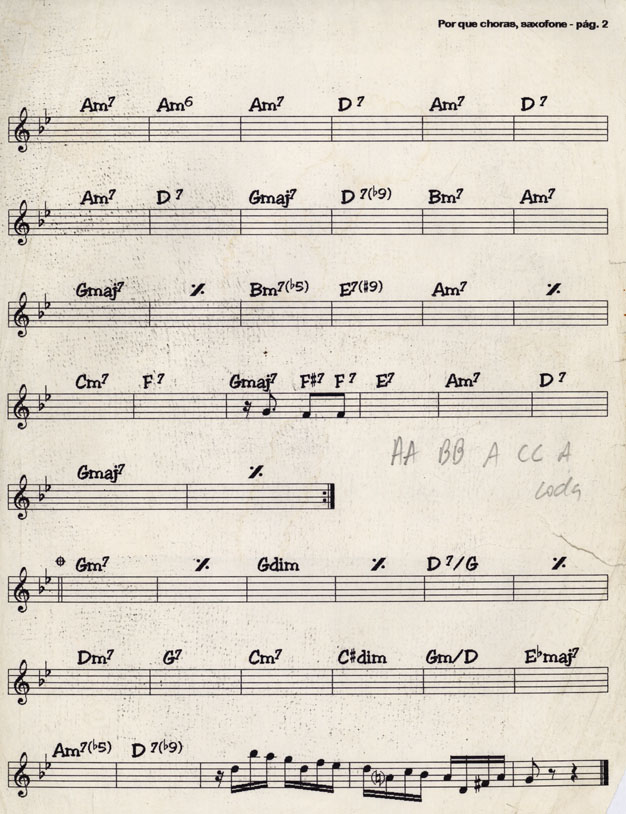 Por que choras, saxofone - pág. 2
Am7 Am6 Am7 D7 Am7 D7
Am7 D7 Gmaj7 D7(♭9) Bm7 Am7
Gmaj7 Bm7(♭5) E7(#9) Am7
Cm7 F7 Gmaj7 F#7 F7 E7 Am7 D7
AA BB A CC A
coda
Gmaj7
Gm7 Gdim D7/G
Dm7 G7 Cm7 C#dim Gm/D E♭maj7
Am7(♭5) D7(♭9)